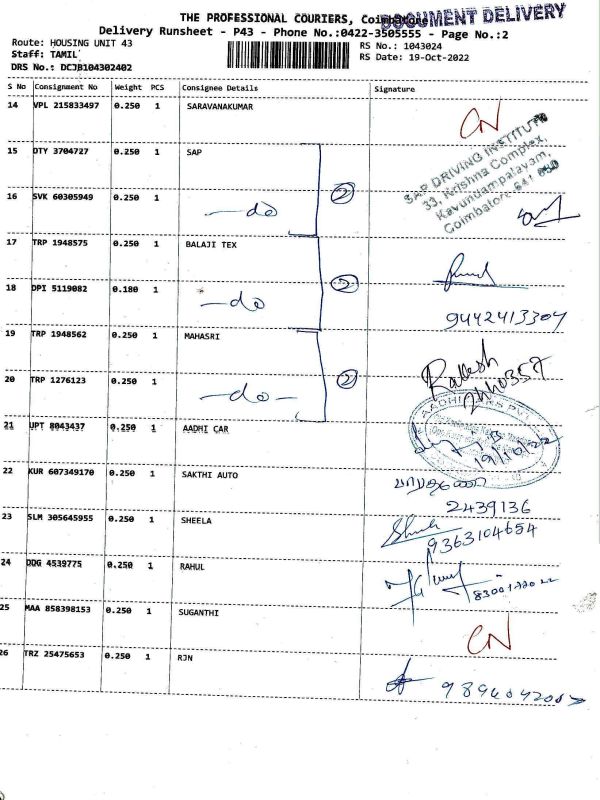 THE PROFESSIONAL COURIERS, Coimbatore
DOCUMENT DELIVERY
Delivery Runsheet - P43 - Phone No.:0422-3505555 - Page No.:2
Route: HOUSING UNIT 43
RS No.: 1043024
Staff: TAMIL
RS Date: 19-Oct-2022
DRS No.: DCJB104302402
S No Consignment No Weight PCS Consignee Details Signature
14 VPL 215833497 0.250 1 SARAVANAKUMAR CN
15 DTY 3704727 0.250 1 SAP
SAP DRIVING INSTITUTE
33, Krishna Complex,
Kavundampalayam,
Coimbatore-641 030
2
16 SVK 60305949 0.250 1 —do
17 TRP 1948575 0.250 1 BALAJI TEX
2
18 DPI 5119082 0.180 1 —do
9442413304
19 TRP 1948562 0.250 1 MAHASRI
Rakesh
2440357
2
20 TRP 1276123 0.250 1 —do—
21 UPT 8043437 0.250 1 AADHI CAR
19/10/22
22 KUR 607349170 0.250 1 SAKTHI AUTO
2439136
23 SLM 305645955 0.250 1 SHEELA
9363104654
24 DDG 4539775 0.250 1 RAHUL
25 MAA 858398153 0.250 1 SUGANTHI CN
26 TRZ 25475653 0.250 1 RJN